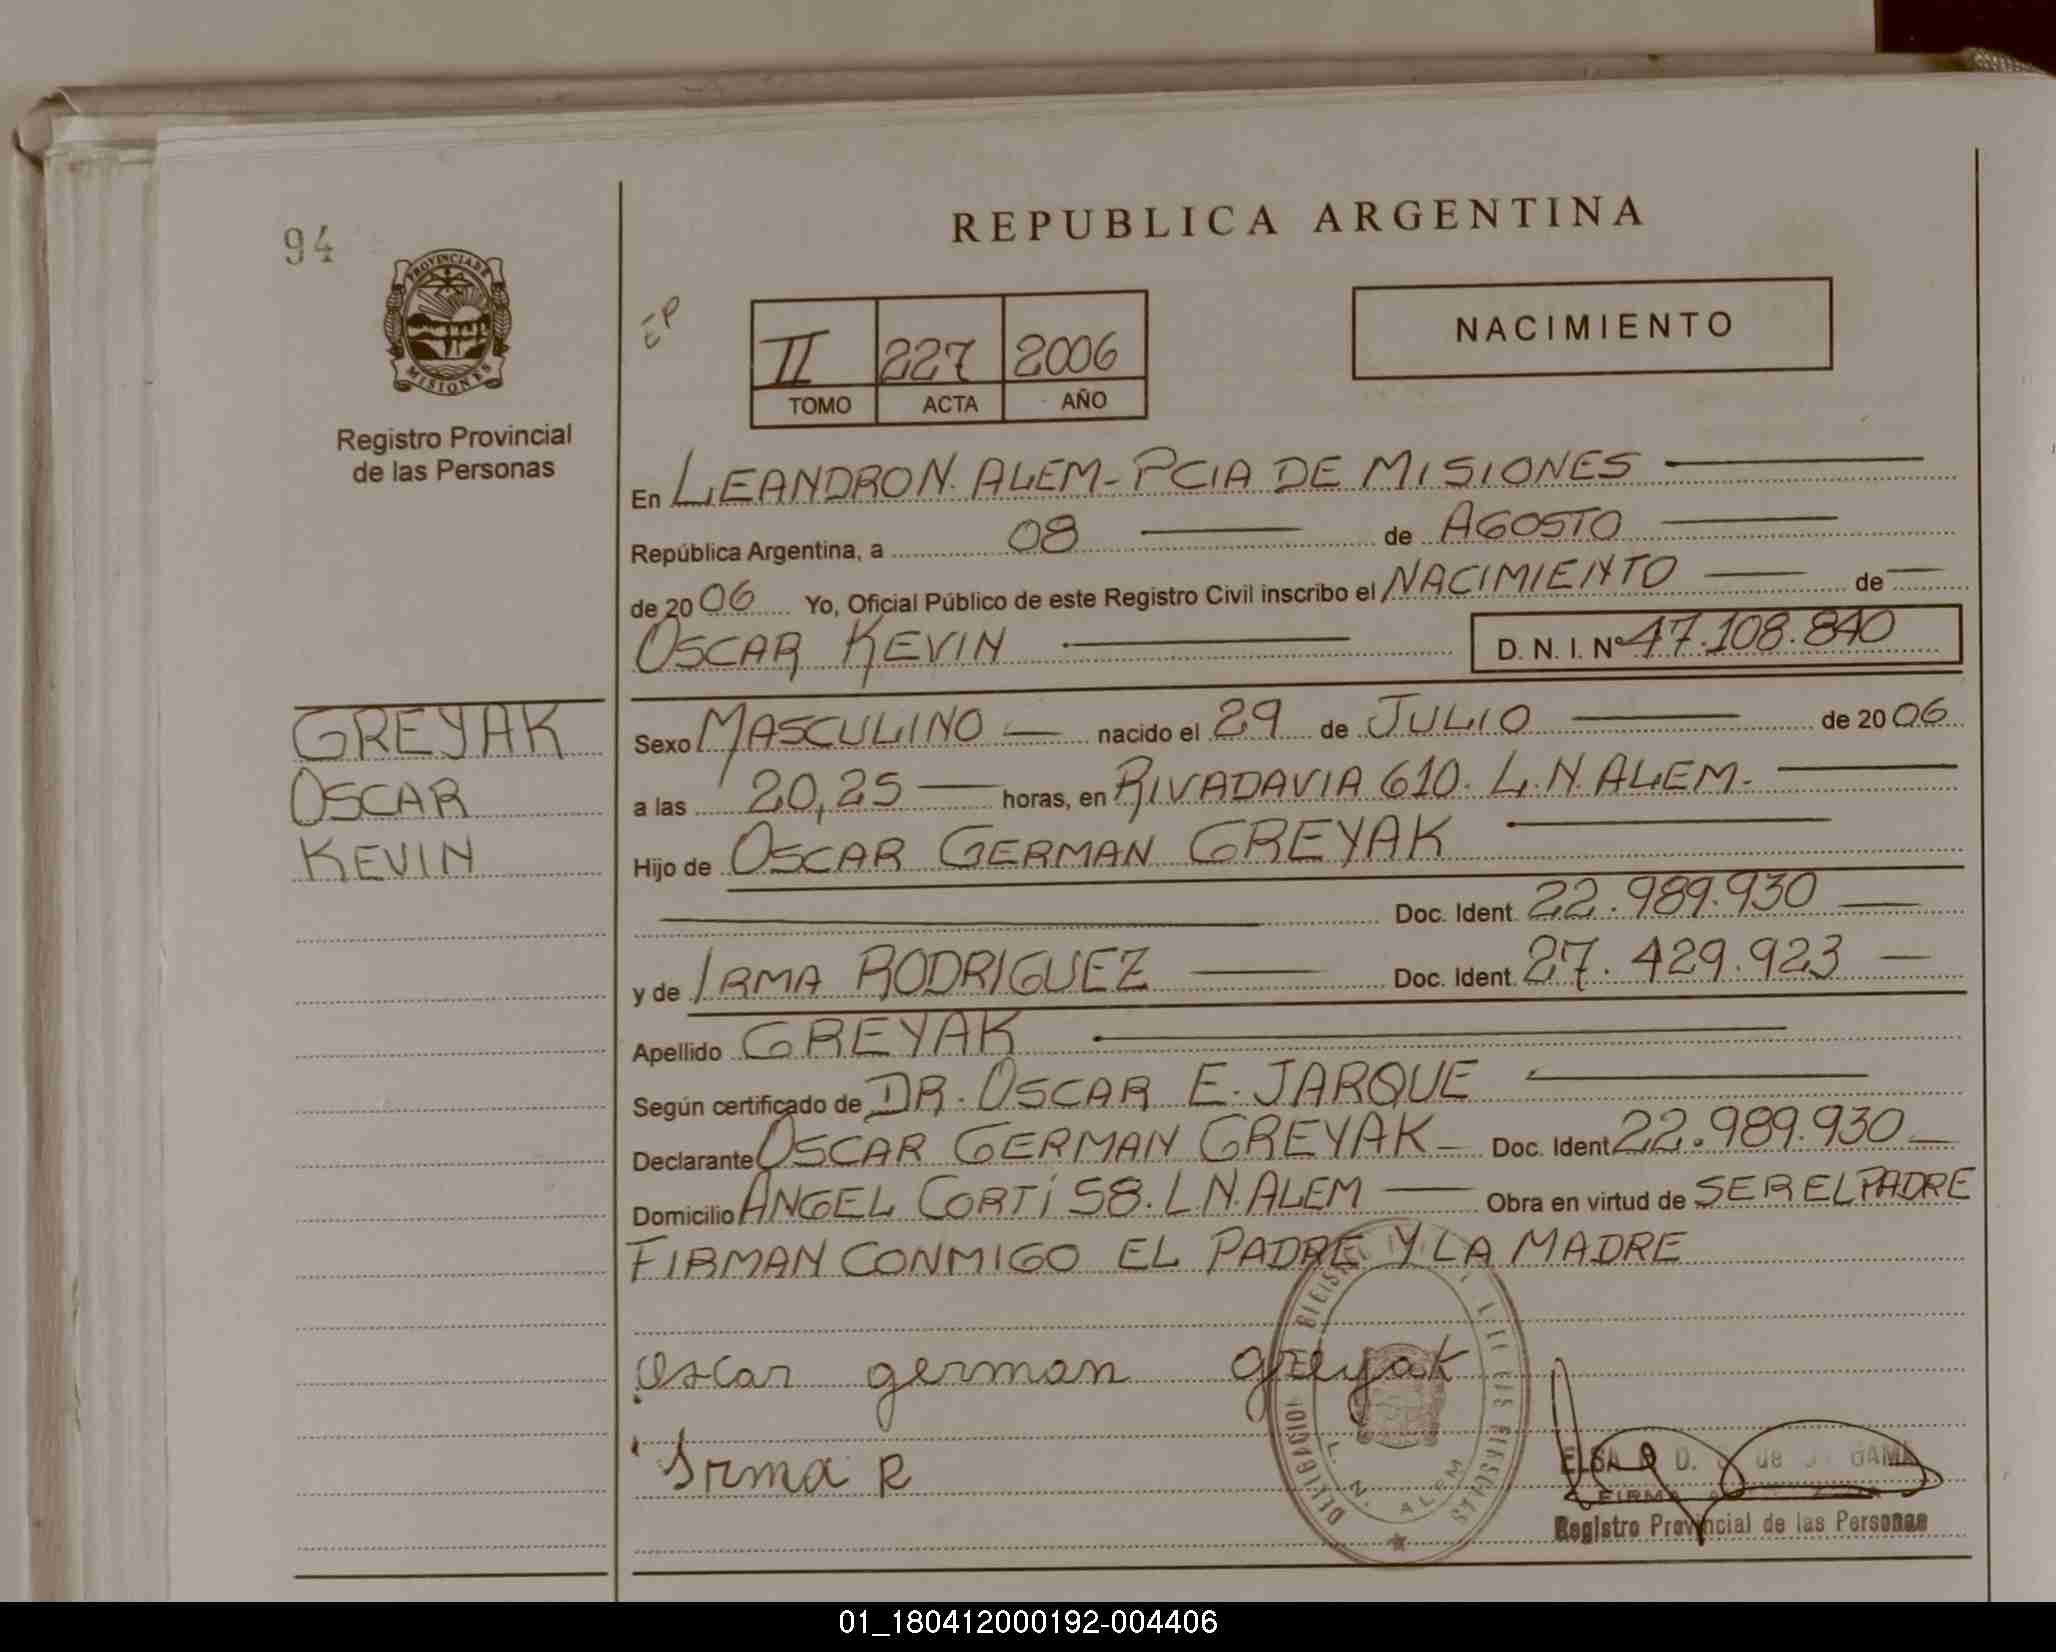 94
PROVINCIA DE
MISIONES
Registro Provincial
de las Personas
GREYAK
OSCAR
KEVIN
REPUBLICA ARGENTINA
EP
II 227 2006
TOMO ACTA AÑO
NACIMIENTO
En LEANDRO N. ALEM - PCIA DE MISIONES
República Argentina, a 08 de AGOSTO
de 2006 Yo, Oficial Público de este Registro Civil inscribo el NACIMIENTO de
OSCAR KEVIN D. N. I. Nº 47.108.840
Sexo MASCULINO nacido el 29 de JULIO de 2006
a las 20,25 horas, en RIVADAVIA 610. L.N. ALEM.
Hijo de OSCAR GERMAN GREYAK
Doc. Ident. 22.989.930
y de IRMA RODRIGUEZ Doc. Ident. 27.429.923
Apellido GREYAK
Según certificado de DR. OSCAR E. JARQUE
Declarante OSCAR GERMAN GREYAK Doc. Ident. 22.989.930
Domicilio ANGEL CORTI 58. L N. ALEM Obra en virtud de SER EL PADRE
FIRMAN CONMIGO EL PADRE Y LA MADRE
Oscar german greyak
Irma R
L. N. ALEM
ELSA D. de
FIRMA
Registro Provincial de las Personas
01_180412000192-004406